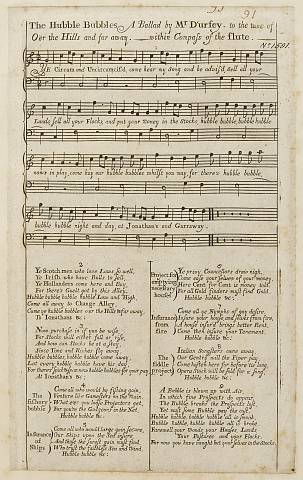 91
The Hubble Bubbles A Ballad by Mr. D'urfey. to the tune of
O'er the Hills and far away. within Compass of the flute.
No. 1591.
YE Circum and Uncircumcis'd, come hear my Song and be advis'd, Sell all your
Lands Sell all your Flocks, and put your Money in the Stocks hubble bubble, hubble bubble,
now's in play, come buy our hubble bubbles whilst you may, for there's hubble bubble,
hubble bubble night and day, at Jonathan's and Garraway.
2
Ye Scotch men who love Laws so well,
Ye Irish, who have Bulls to sell,
Ye Hollanders come here and Buy,
For there's Guelt got by this Alley,
Hubble bubble hubble bubble Low and High,
Come all away to Change Alley,
Come ye hubble bubblers o'er the Hills & far away.
To Jonathan &c.
3
Now purchase it if you be wise,
For Stocks will either fall or rise,
And how can Stocks be at a stay,
Since Time and Tide pass by away
Hubble bubble hubble bubble come away
Let every bubble bubble bubble while he may
For there's just now new hubble bubbles for your pay
At Jonathan's &c.
The
fishery
bubble
4
Come all who would by fishing gain,
Venture like Gamesters in the Main,
What ever you loose Projectors get,
For you're the Gudgeons in the Net,
Hubble bubble &c.
Insurance
of
Ships
5
Come all who would large gain secure,
Our Ships upon the Sea insure
And those the surest gain must find,
Who trust the bubbles Sea and Wind
Hubble bubble &c.
Project for
emptying
necessary
houses
6
Ye prying Chancellors draw nigh,
Come ease your selves of your money
Here Cent per Cent is money told,
For all Gold finders must find Gold.
Hubble bubble &c.
Insurance
from
fire
7
Come all ye Nymphs of gay desire,
Insure your house and stocks from fire,
A house insur'd brings better Rent,
Come then insure your Tenement.
Hubble bubble &c.
The
fiddle
project
8
Italian Songsters come away
Our Gentry will the Piper pay
Come hasten here for before 'tis long
Opera Stock will be sold for a Song.
Hubble bubble &c.
9
A Bubble is blown up with Air,
In which fine Prospects do appear
The Bubble breaks the Prospect's lost,
Yet must some Bubble pay the cost.
Hubble bubble, hubble bubble, all is smoak,
Hubble bubble, hubble bubble all is broke
Farewell your Goods your Houses Lands
Your Pastures and your Flocks
For now you have nought but your selves in the Stocks.